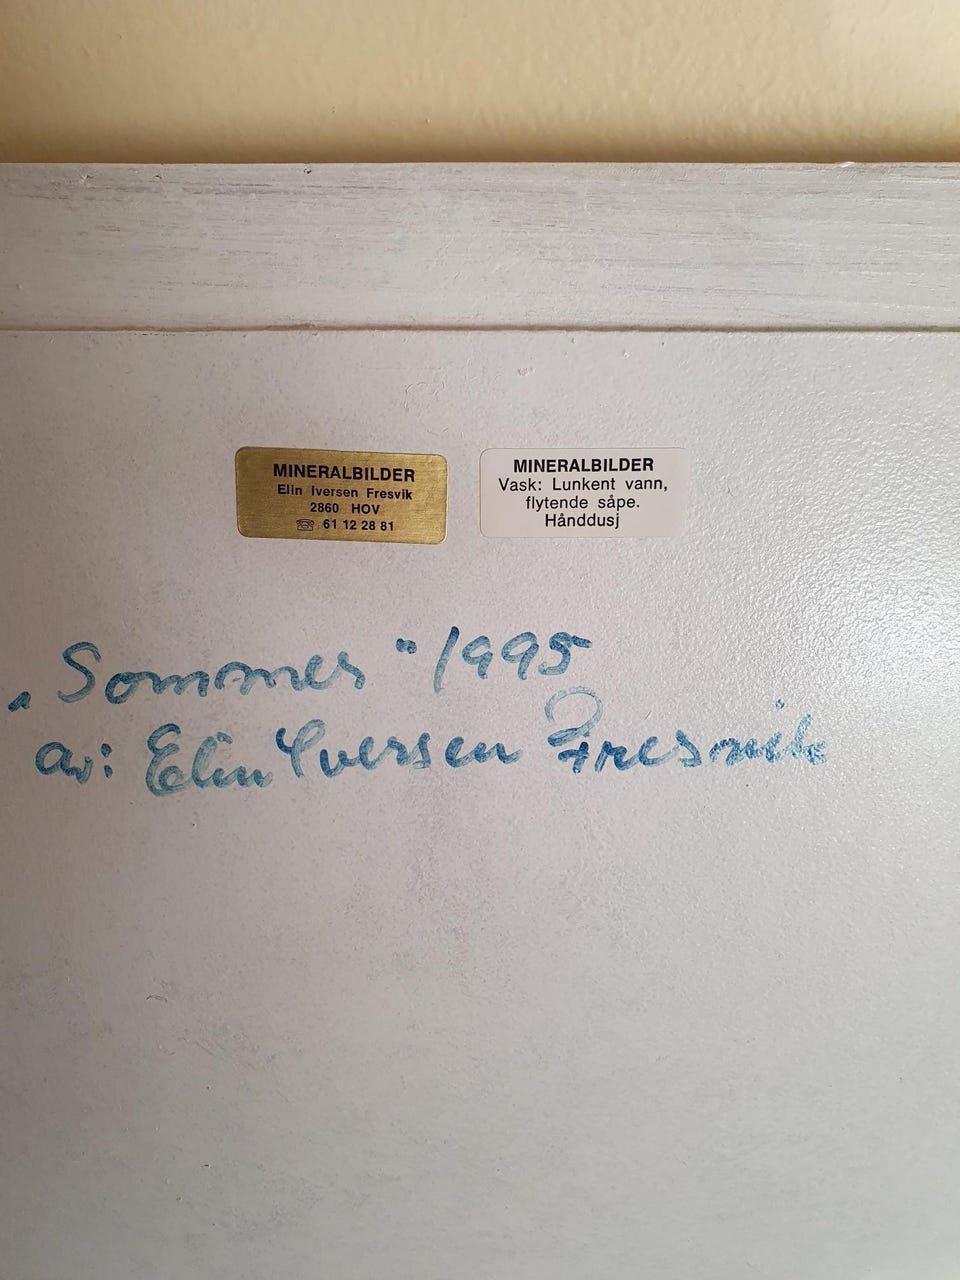 MINERALBILDER
Elin Iversen Fresvik
2860 HOV
☏ 61 12 28 81
MINERALBILDER
Vask: Lunkent vann,
flytende såpe.
Hånddusj
„Sommer" 1995
av: Elin Iversen Fresvik